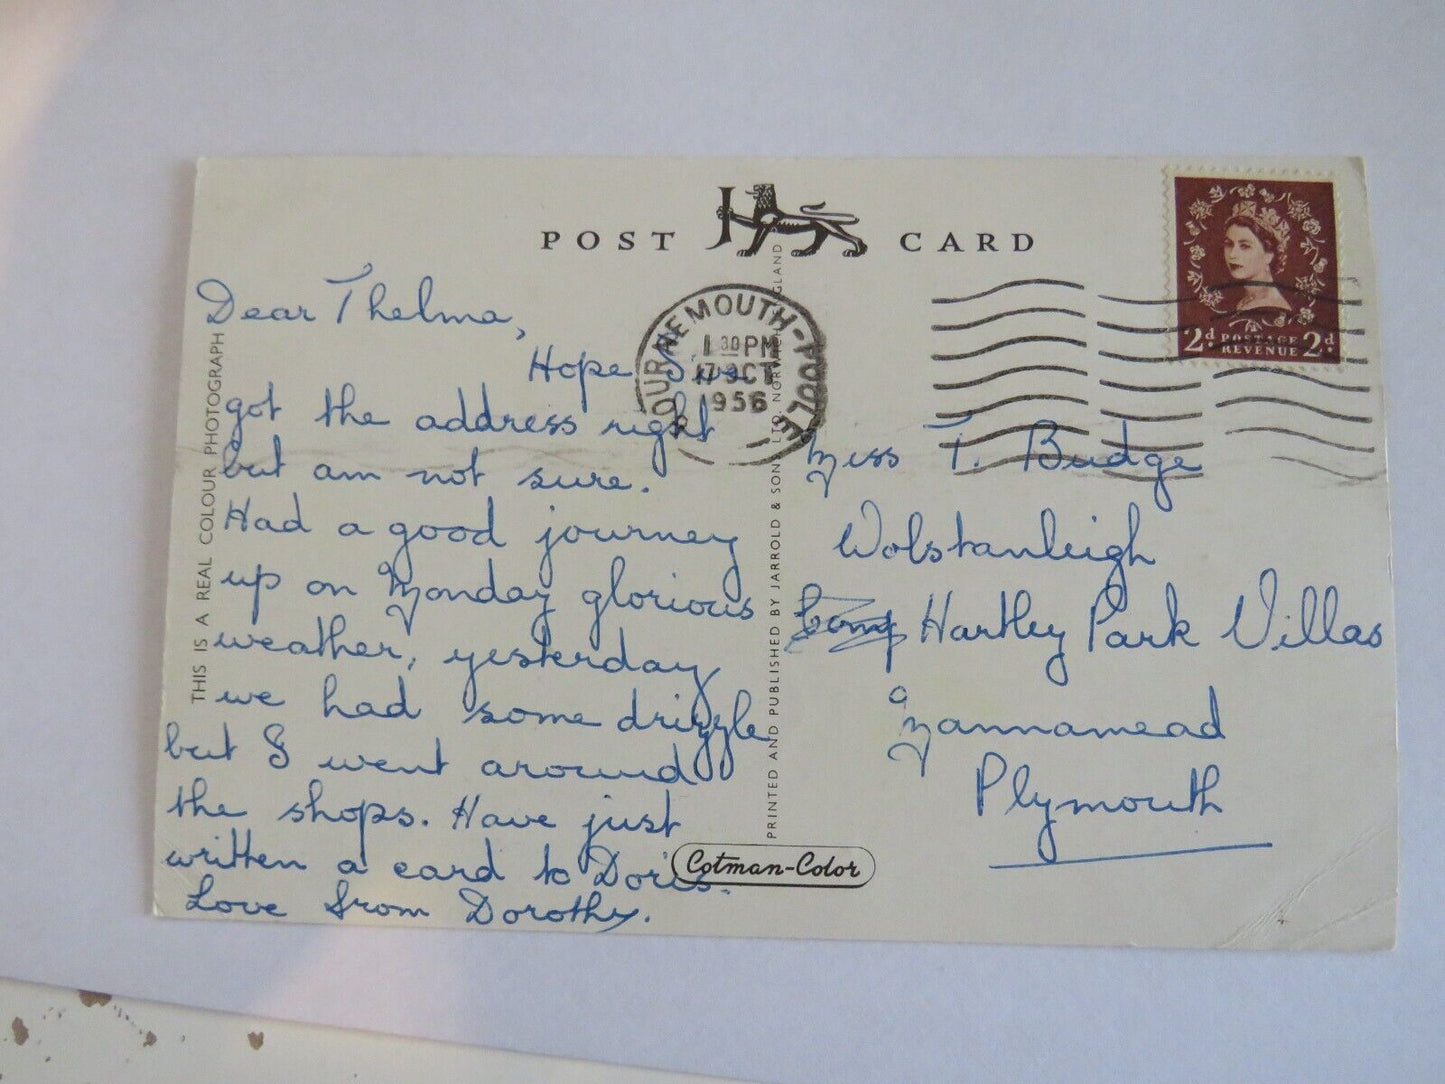 POST CARD
Dear Thelma,
Hope I've
got the address right
but am not sure.
Had a good journey
up on Monday glorious
weather, yesterday
we had some drizzle
but I went around
the shops. Have just
written a card to Doris.
Love from Dorothy.
THIS IS A REAL COLOUR PHOTOGRAPH
BOURNEMOUTH-POOLE
1 30 PM
17 OCT
1956
PRINTED AND PUBLISHED BY JARROLD & SONS LTD. NORWICH ENGLAND
Cotman-Color
2d. POSTAGE REVENUE 2d.
Miss T. Budge
Wolstanleigh
Hartley Park Villas
Mannamead
Plymouth